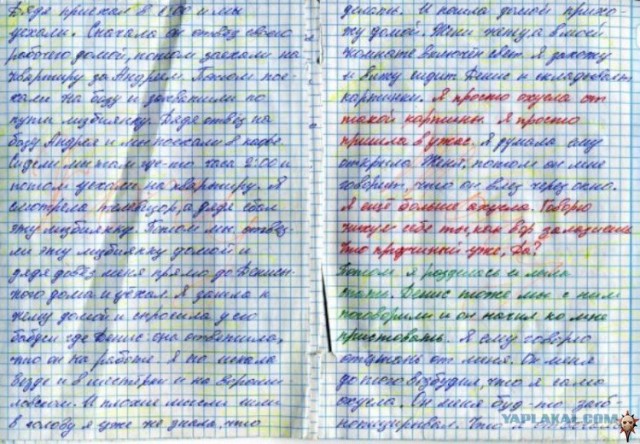 Дядя приехал в 1:00 и мы
уехали. Сначала он отвёз своего
рабочего домой, потом заехали на
квартиру за Андреем. Потом пое-
хали на базу и захватили по
пути
Дядя отвёз на
базу Андрея и мы поехали в кафе.
Сидели мы там где-то часа 2:00 и
потом уехали на квартиру. Я
смотрела телевизор, а дядя
эту
Потом мы отвез-
ли эту
домой и
дядя довёз меня прямо до Денис-
ного дома и уехал. Я зашла к
нему домой и спросила у его
бабуси где Денис она ответила,
что он на работе. Я по искала
везде и в шестёрки и на Вороши-
ловском. И плохие мысли шли
в голову я уже не знала, что
делать. И пошла домой прихо-
жу домой. Жени нету а в моей
комнате включён свет. Я захожу
и вижу сидит Денис и складывает
картинки. Я просто охуела от
такой картины. Я просто
пришла в ужас. Я думала ему
открыла Женя, потом он мне
говорит, что он влез через окно.
Я ещё больше охуела. Говорю
нихуя себе ты, как вор залазишь.
Что придумский уже, да?
Потом я разделась и легла
спать. Денис тоже мы с ним
поговорили и он начал ко мне
приставать. Я ему говорю
отцепись от меня. Он меня
до того возбудил, что я сама
охуела. Он меня буд-то загип-
нотизировал. Что
YAPLAKAL.COM